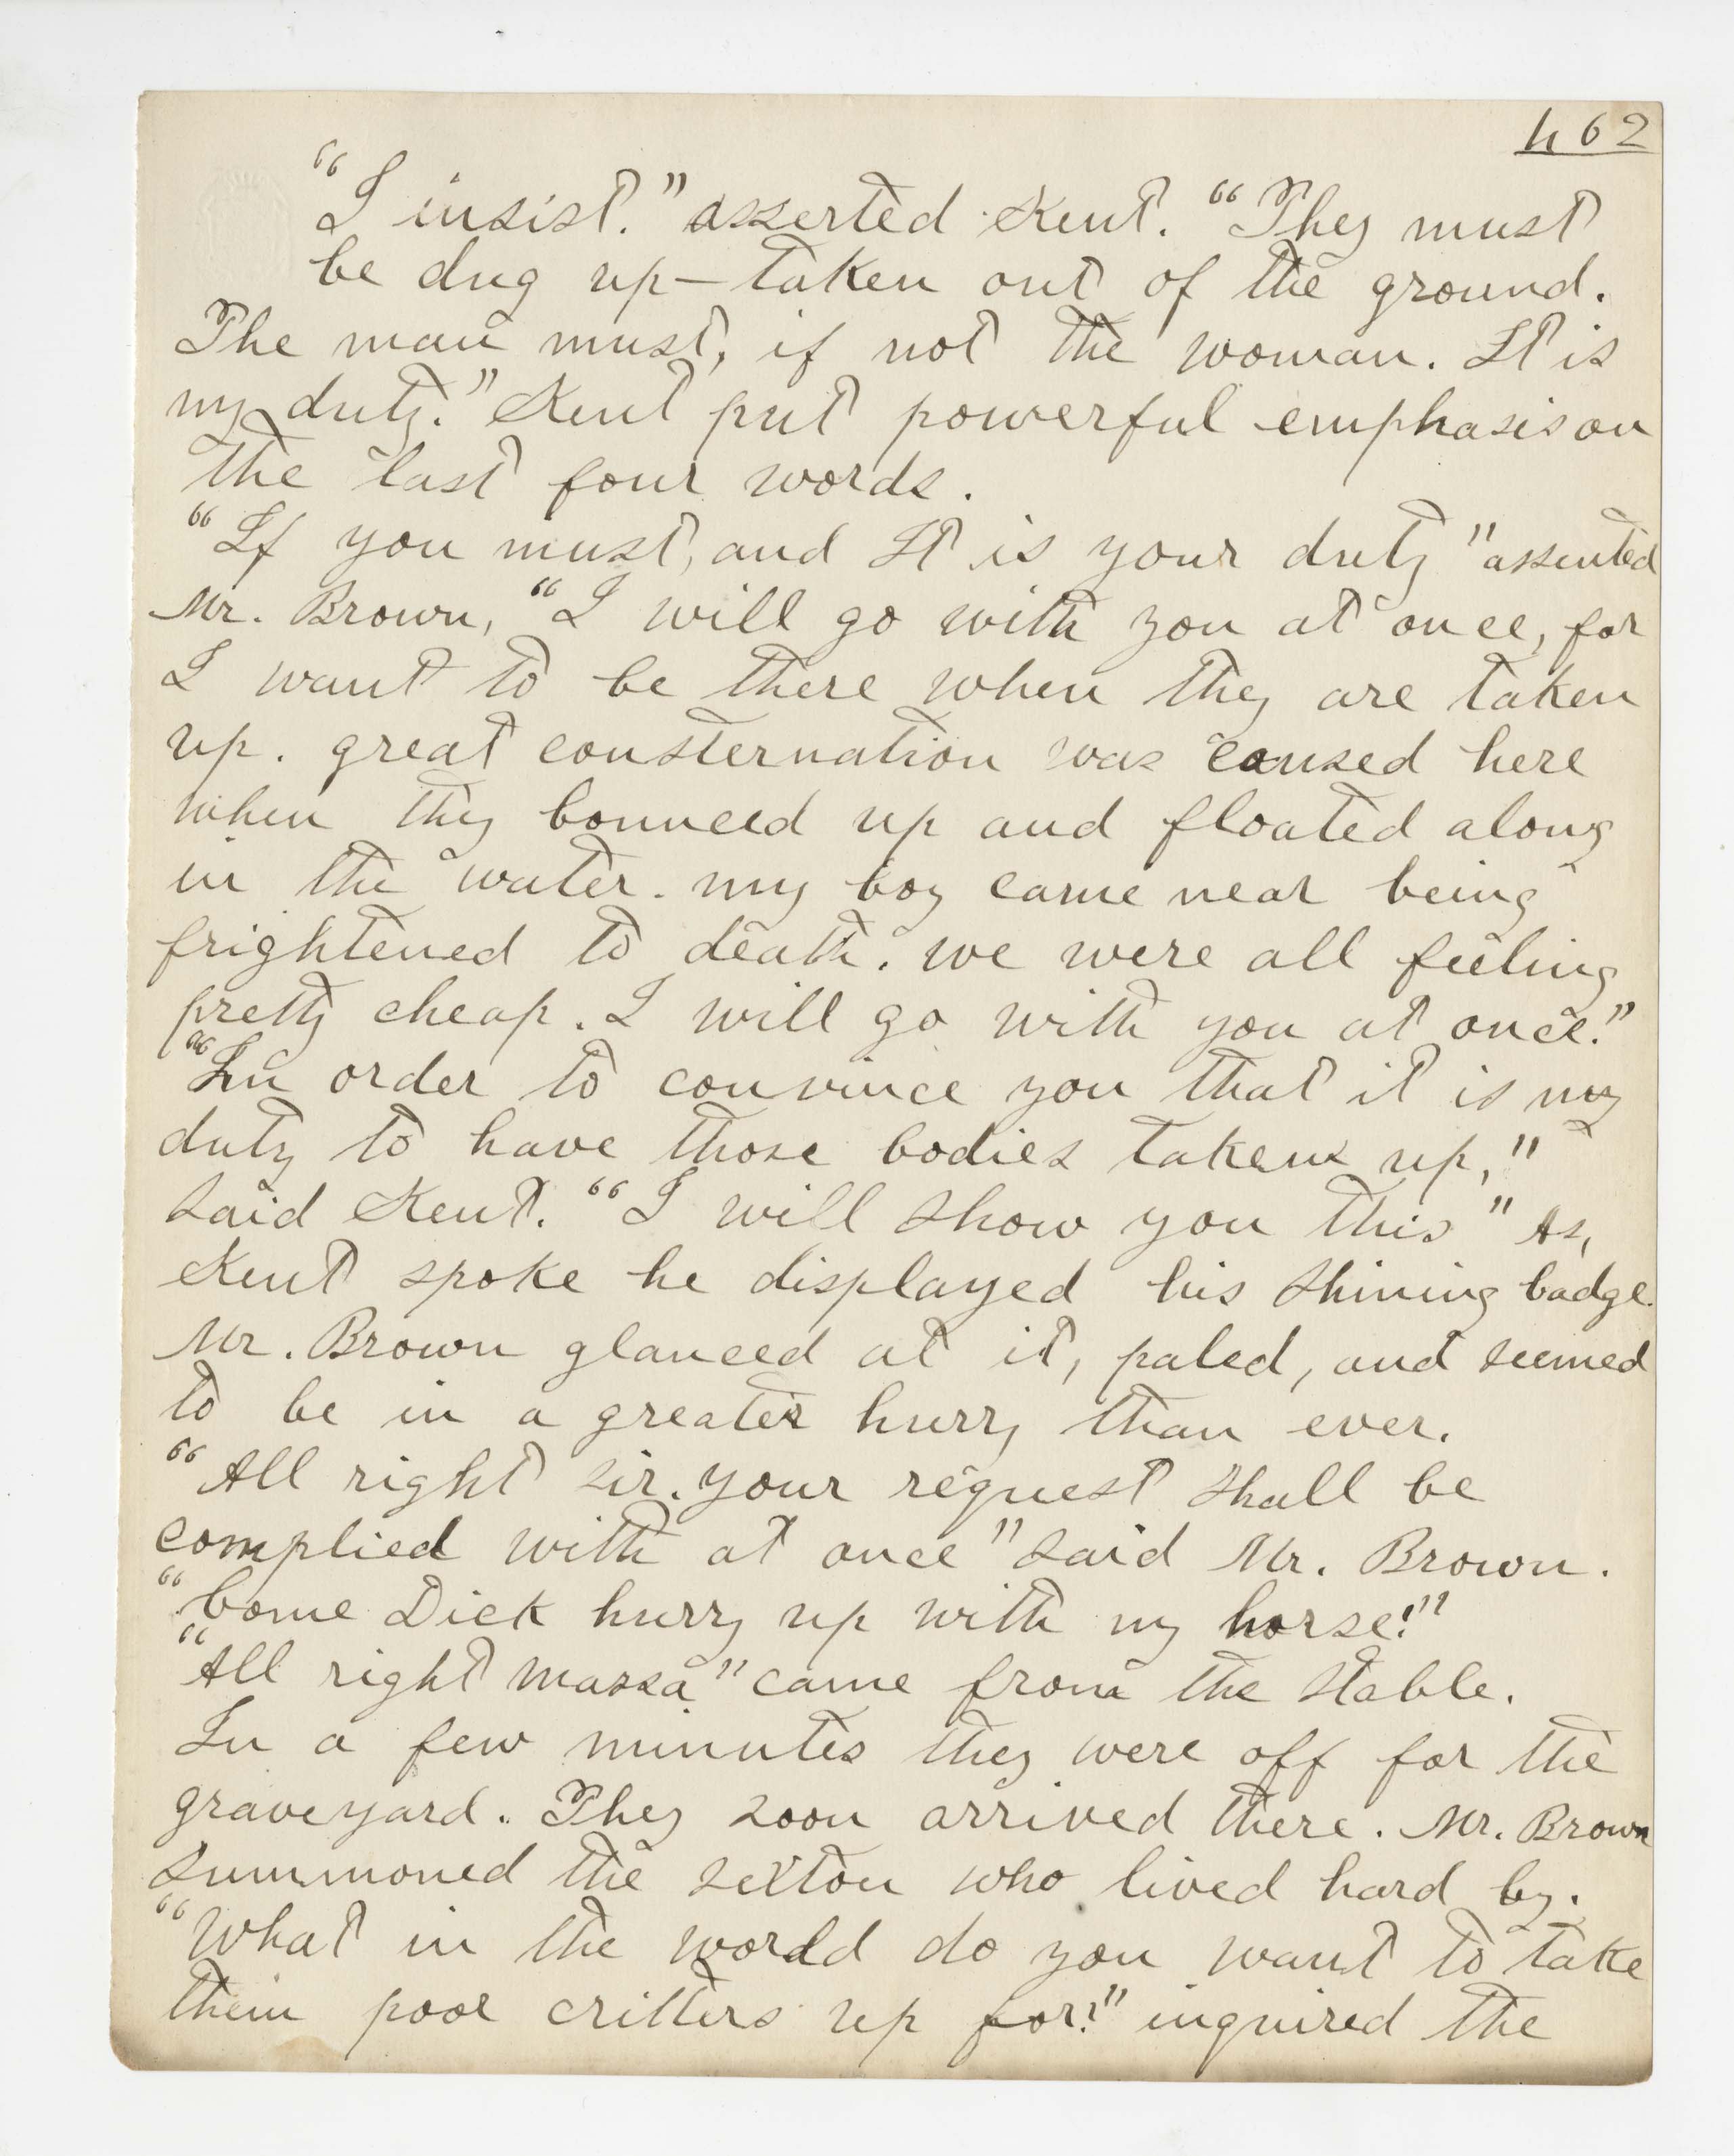 462
"I insist." asserted Kent. "They must
be dug up—taken out of the ground.
The man must, if not the woman. It is
my duty." Kent put powerful emphasis on
the last four words.
"If you must, and It is your duty" assented
Mr. Brown, "I will go with you at once, for
I want to be there when they are taken
up. great consternation was caused here
when they bounced up and floated along
in the water. my boy came near being
frightened to death. we were all feeling
pretty cheap. I will go with you at once."
"In order to convince you that it is my
duty to have those bodies taken up,"
said Kent. "I will show you this" As,
Kent spoke he displayed his shining badge.
Mr. Brown glanced at it, paled, and seemed
to be in a greater hurry than ever.
"All right sir. your request shall be
complied with at once" said Mr. Brown.
"Come Dick hurry up with my horse!"
"All right massa" came from the stable.
In a few minutes they were off for the
graveyard. They soon arrived there. Mr. Brown
summoned the sexton who lived hard by.
"What in the world do you want to take
them poor critters up for!" inquired the